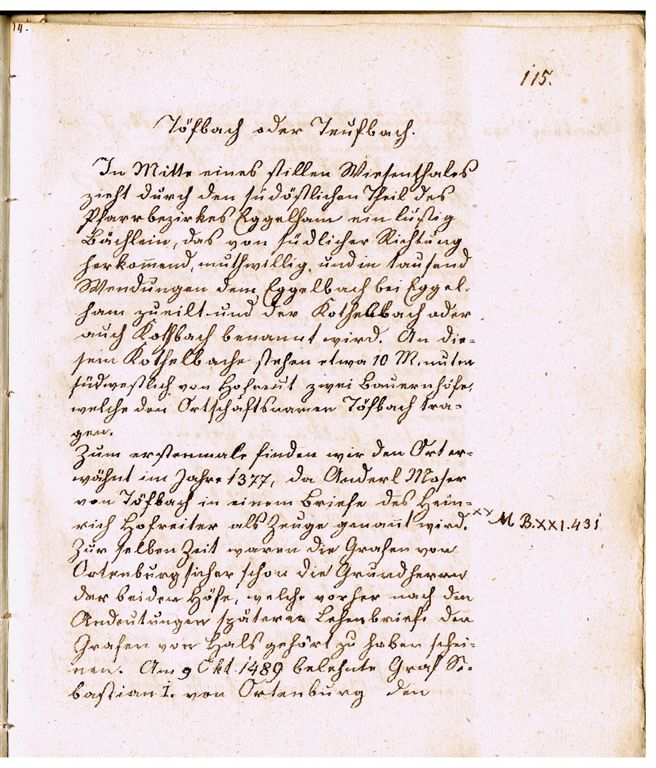 14.
115.
Töfbach oder Teufbach.
In Mitte eines stillen Wiesenthales
zieht durch den südöstlichen Theil des
Pfarrbezirkes Eggelham ein lustig
Bächlein, das von südlicher Richtung
herkom̅end, muthwillig, und in tausend
Wendungen dem Eggelbach bei Eggel-
ham zueilt und der Kothelbach oder
auch Kothbach benannt wird. An die-
sem Kothelbache stehen etwa 10 Minuten
südwestlich von Hofreut zwei Bauernhöfe,
welche den Ortschaftsnamen Töfbach tra-
gen.
Zum erstenmale finden wir den Ort er-
wähnt im Jahre 1377, da Anderl Moser
von Töfbach in einem Briefe des Hein-
rich Hofreiter als Zeuge genannt wird. xx M B. XXI. 431
Zur selben Zeit waren die Grafen von
Ortenburg sicher schon die Grundherrn
der beiden Höfe, welche vorher nach den
Andeutungen späterer Lehenbriefe den
Grafen von Hals gehört zu haben schei-
nen. Am 9 Okt. 1489 belehnte Graf Se-
bastian I. von Ortenburg den